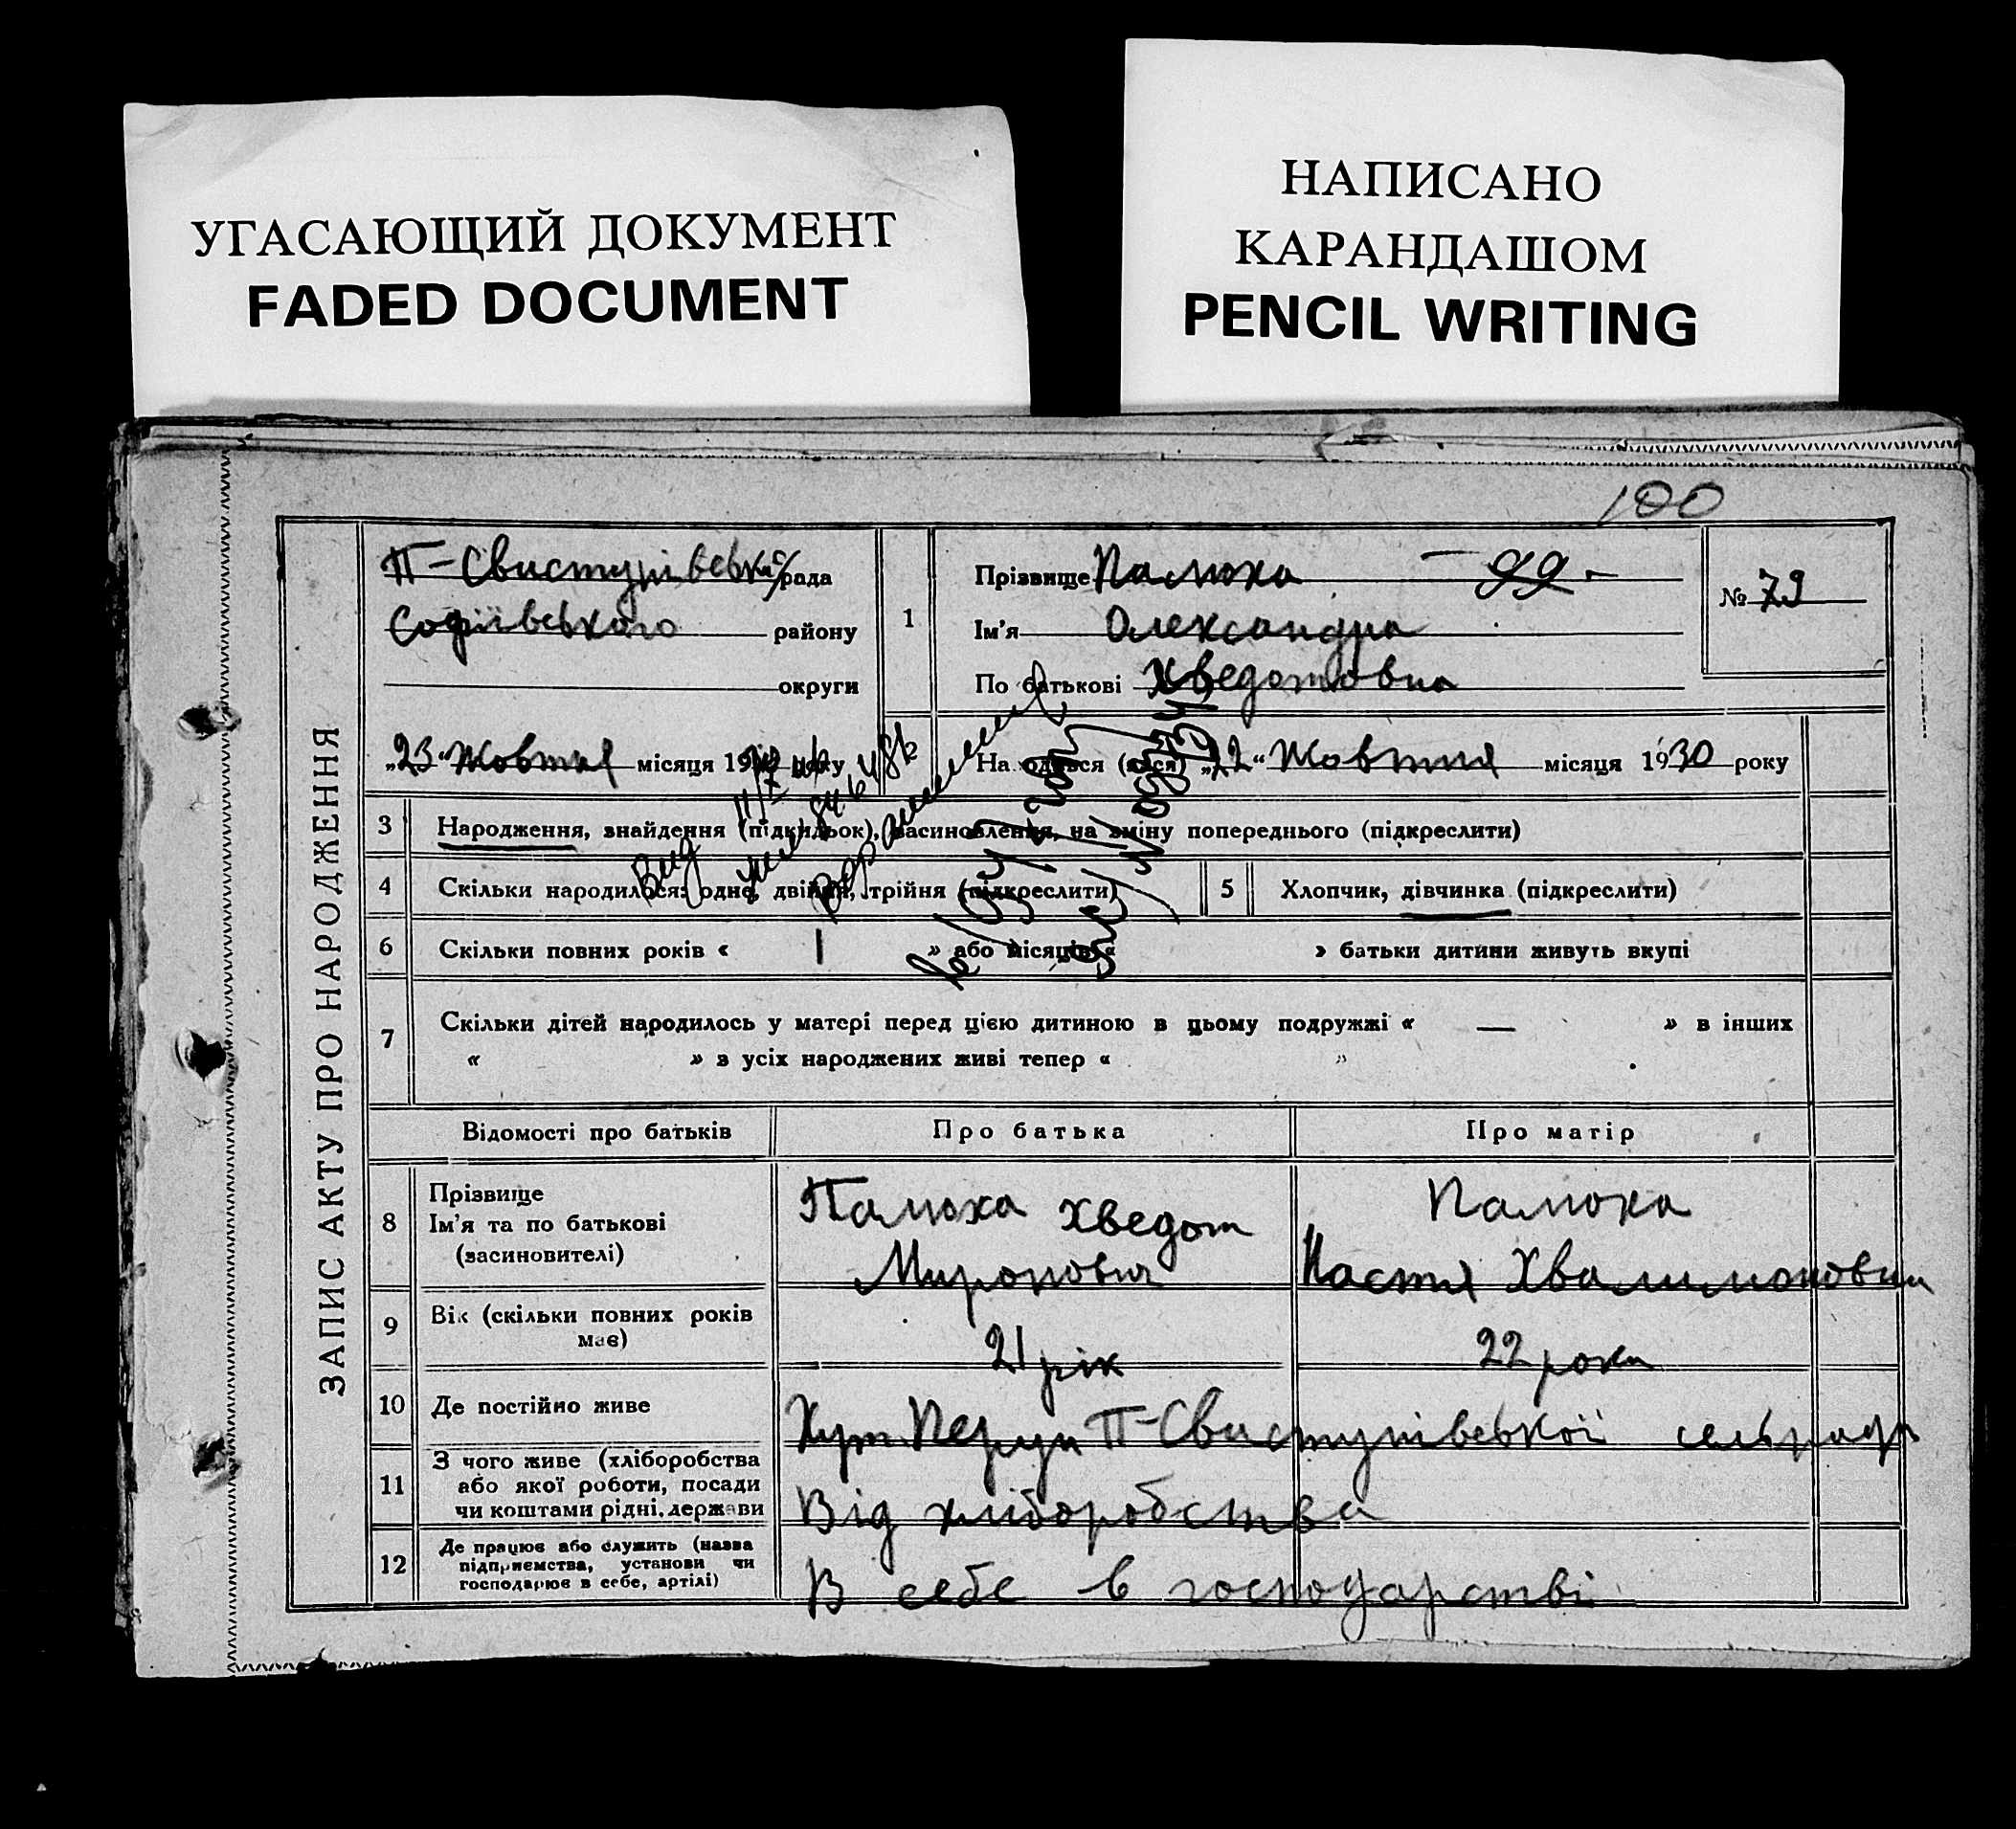 УГАСАЮЩИЙ ДОКУМЕНТ
FADED DOCUMENT
НАПИСАНО
КАРАНДАШОМ
PENCIL WRITING
100
ЗАПИС АКТУ ПРО НАРОДЖЕННЯ
П-Свистунівська с/рада
Софіївського району
округи
"23" Жовтня місяця 19 року
1
Прізвище Палюха - 99 -
Ім'я Олександра
По батькові Хведотовна
№ 79
2 На одився (лася) "22" Жовтня місяця 1930 року
3 Народження, знайдення (підкидьок), засиновлення, на зміну попереднього (підкреслити)
4 Скільки народилося: одне, двійня, трійня (підкреслити)
5 Хлопчик, дівчинка (підкреслити)
6 Скільки повних років « 1 » або місяців « » батьки дитини живуть вкупі
7 Скільки дітей народилось у матері перед цією дитиною в цьому подружжі « — » в інших
« » з усіх народжених живі тепер « »
Відомості про батьків Про батька Про матір
8 Прізвище
Ім'я та по батькові
(засиновителі)
Палюха Хведот
Миронович
Палюха
Настя Хвалимоновна
9 Вік (скільки повних років
має)
21 рік
22 роки
10 Де постійно живе
Хут. П-Свистунівської сельради
11 З чого живе (хліборобства
або якої роботи, посади
чи коштами рідні, держави
Від хліборобства
12 Де працює або служить (назва
підприємства, установи чи
господарює в себе, артілі)
В себе в господарстві